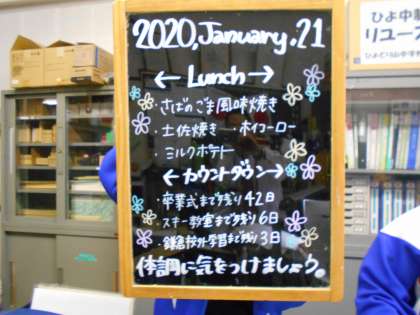 2020,January.21
←Lunch→
・さばのごま風味焼き
・土佐焼き ・ホイコーロー
・ミルクポテト
←カウントダウン→
・卒業式まで残り42日
・スキー教室まで残り6日
・鎌倉校外学習まで残り3日
体調に気をつけましょう。
ひよ中
リユース